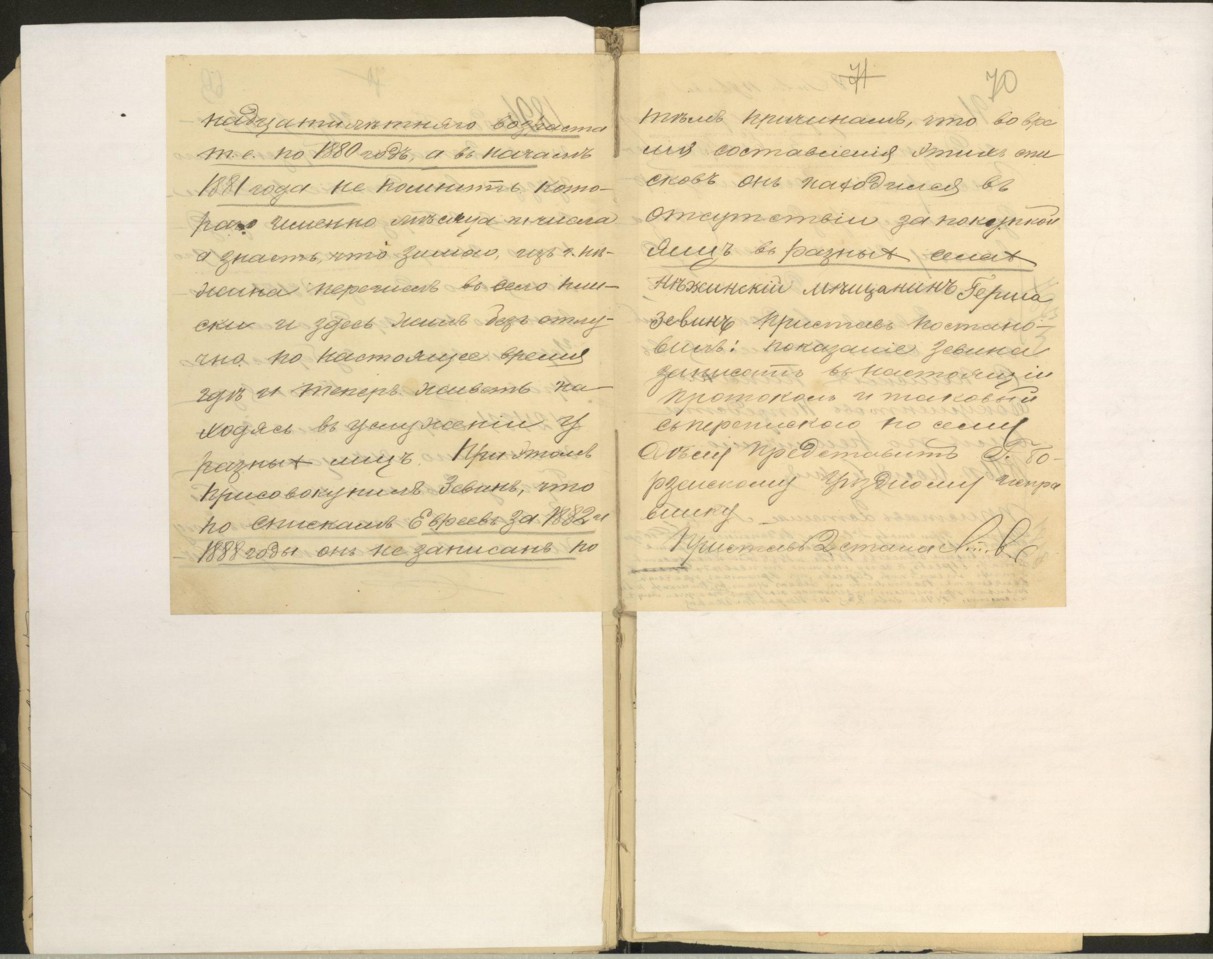 надцатилѣтняго возраста
т.е. по 1880 годъ, а въ началѣ
1881 года не помнитъ кото-
раго именно мѣсяца и числа
а знаетъ, что зимою, изъ г. Нѣ-
жина переѣхалъ въ село
и здѣсь жилъ безъ отлу-
чно по настоящее время
гдѣ и теперь живетъ на-
ходясь въ услуженіи у
разныхъ лицъ. При этомъ
присовокупилъ Зевинъ, что
по спискамъ Евреевъ за 1882 и
1888 годы онъ не записанъ по
71 70
тѣмъ причинамъ, что во вре
мя составленія этихъ спи
сковъ онъ находился въ
отсутствіи за покупкой
яицъ въ разныхъ селахъ
Нѣжинскій мѣщанинъ Герша
Зевинъ Приставъ постано-
вилъ: показаніе Зевина
записать въ настоящій
протоколъ и таковый
съ перепискою по сему
дѣлу представить Г. Бо-
рзенскому Уѣздному Испра
внику
Приставъ 2 стана